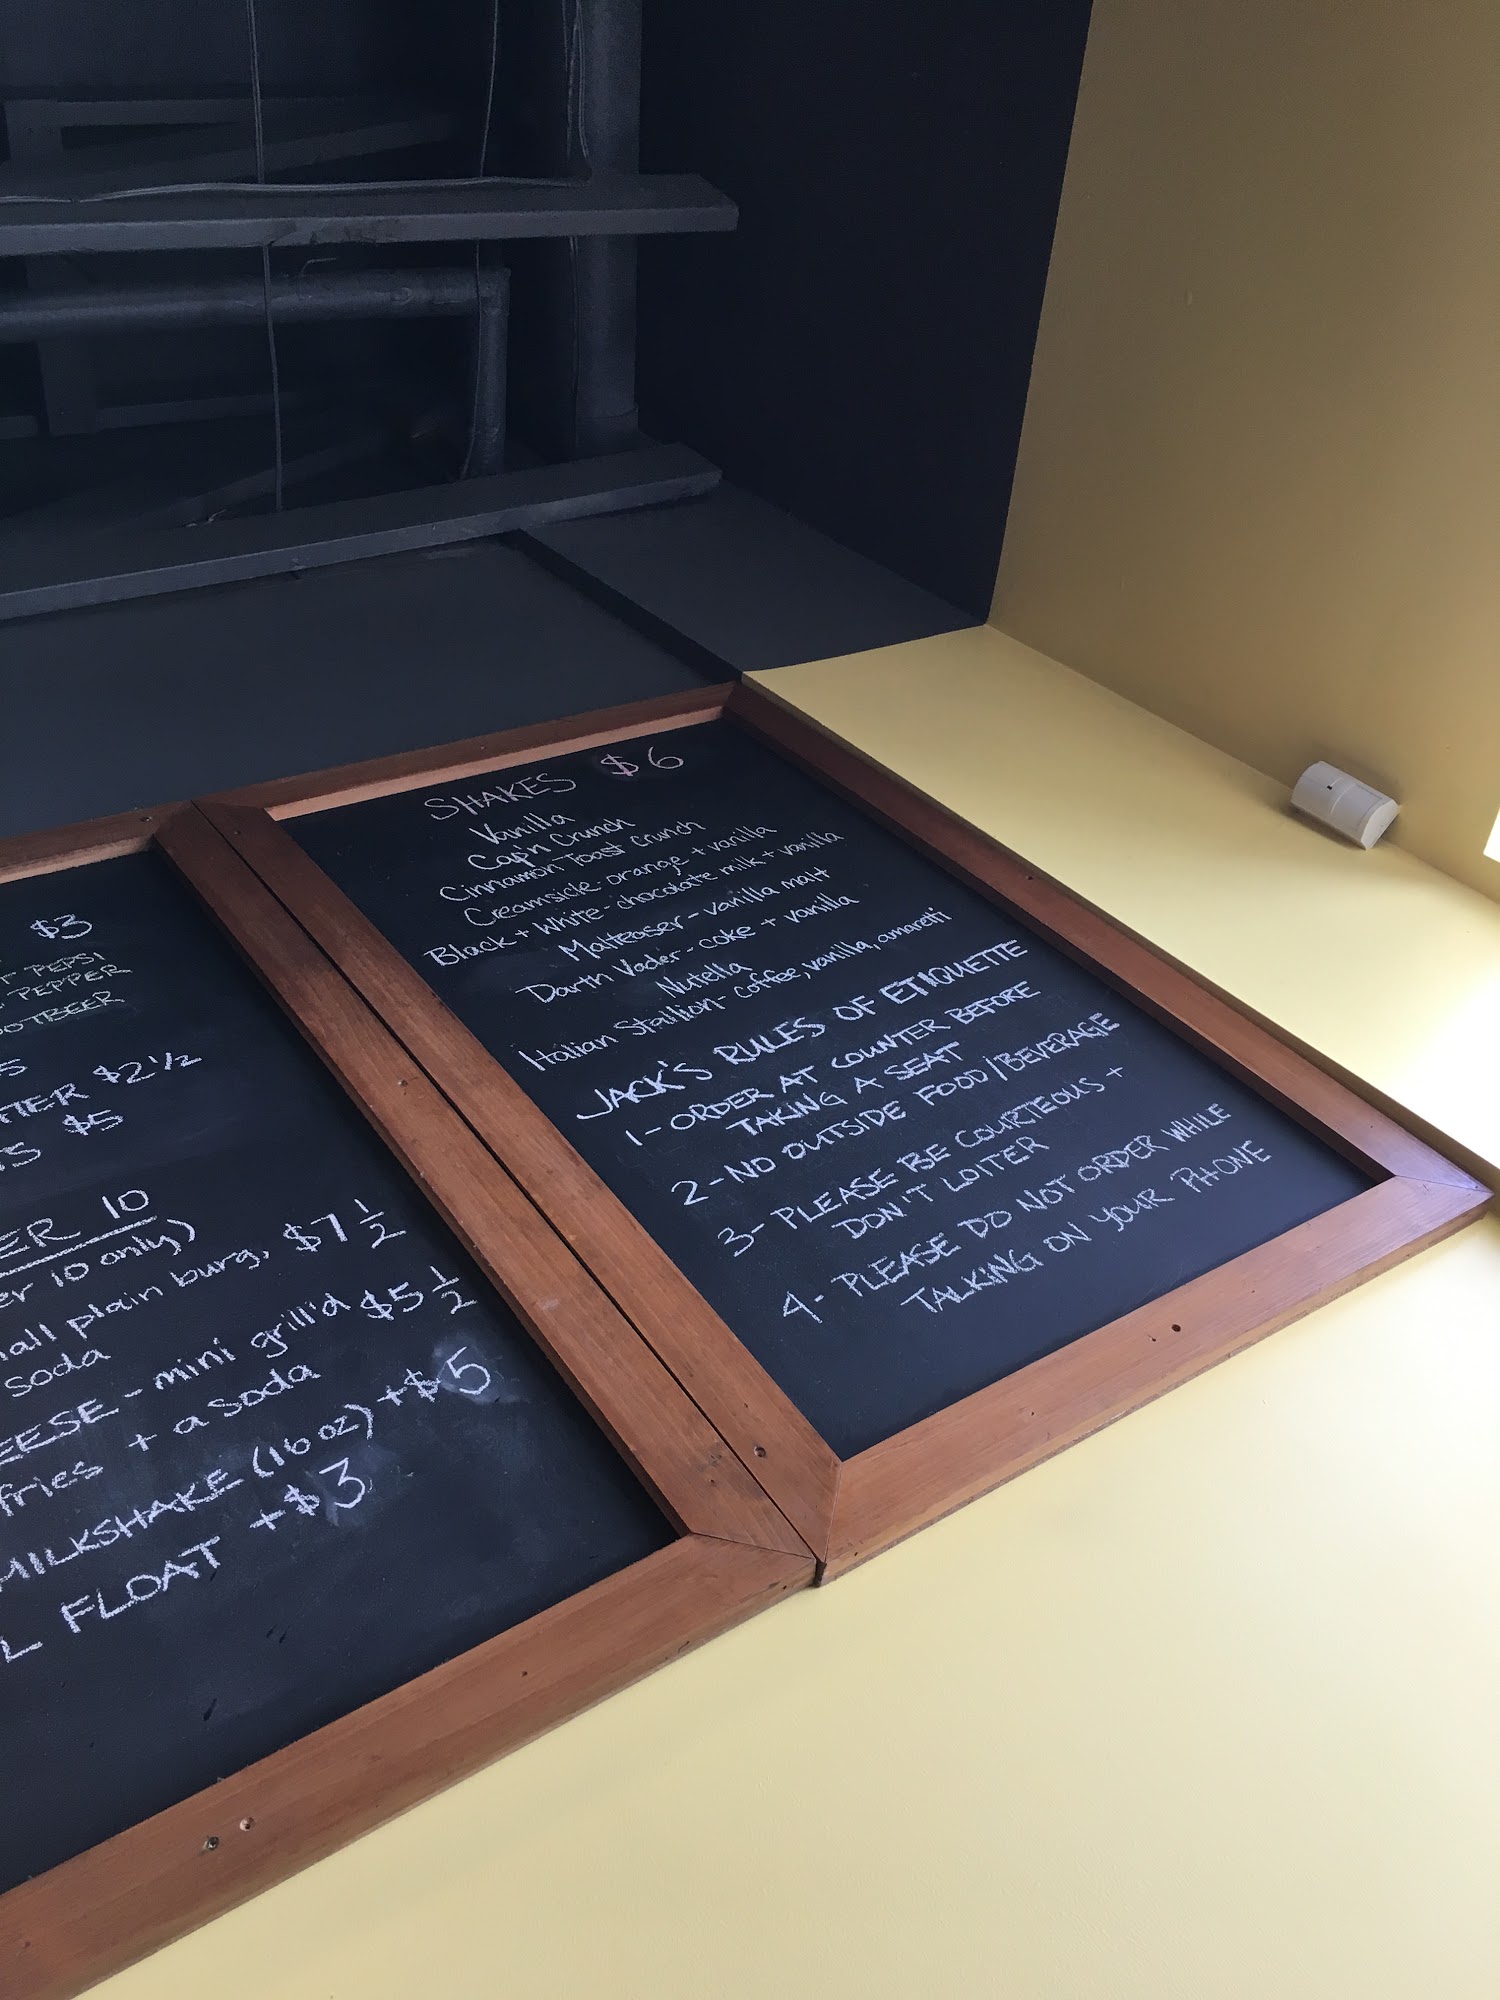 $3
PEPSI
PEPPER
$2 1/2
$5
10
10 only)
plain burg, $7 1/2
soda
- mini grill'd $5 1/2
fries + a soda
MILKSHAKE (16 oz) +$5
FLOAT +$3
SHAKES $6
Vanilla
Cap'n Crunch
Cinnamon Toast Crunch
Creamsicle- orange + vanilla
Black + White - chocolate milk + vanilla
Malteaser - vanilla malt
Darth Vader - coke + vanilla
Nutella
Italian Stallion- coffee, vanilla, amaretti
JACK'S RULES OF ETIQUETTE
1- ORDER AT COUNTER BEFORE
TAKING A SEAT
2- NO OUTSIDE FOOD/BEVERAGE
3- PLEASE BE COURTEOUS +
DON'T LOITER
4- PLEASE DO NOT ORDER WHILE
TALKING ON YOUR PHONE